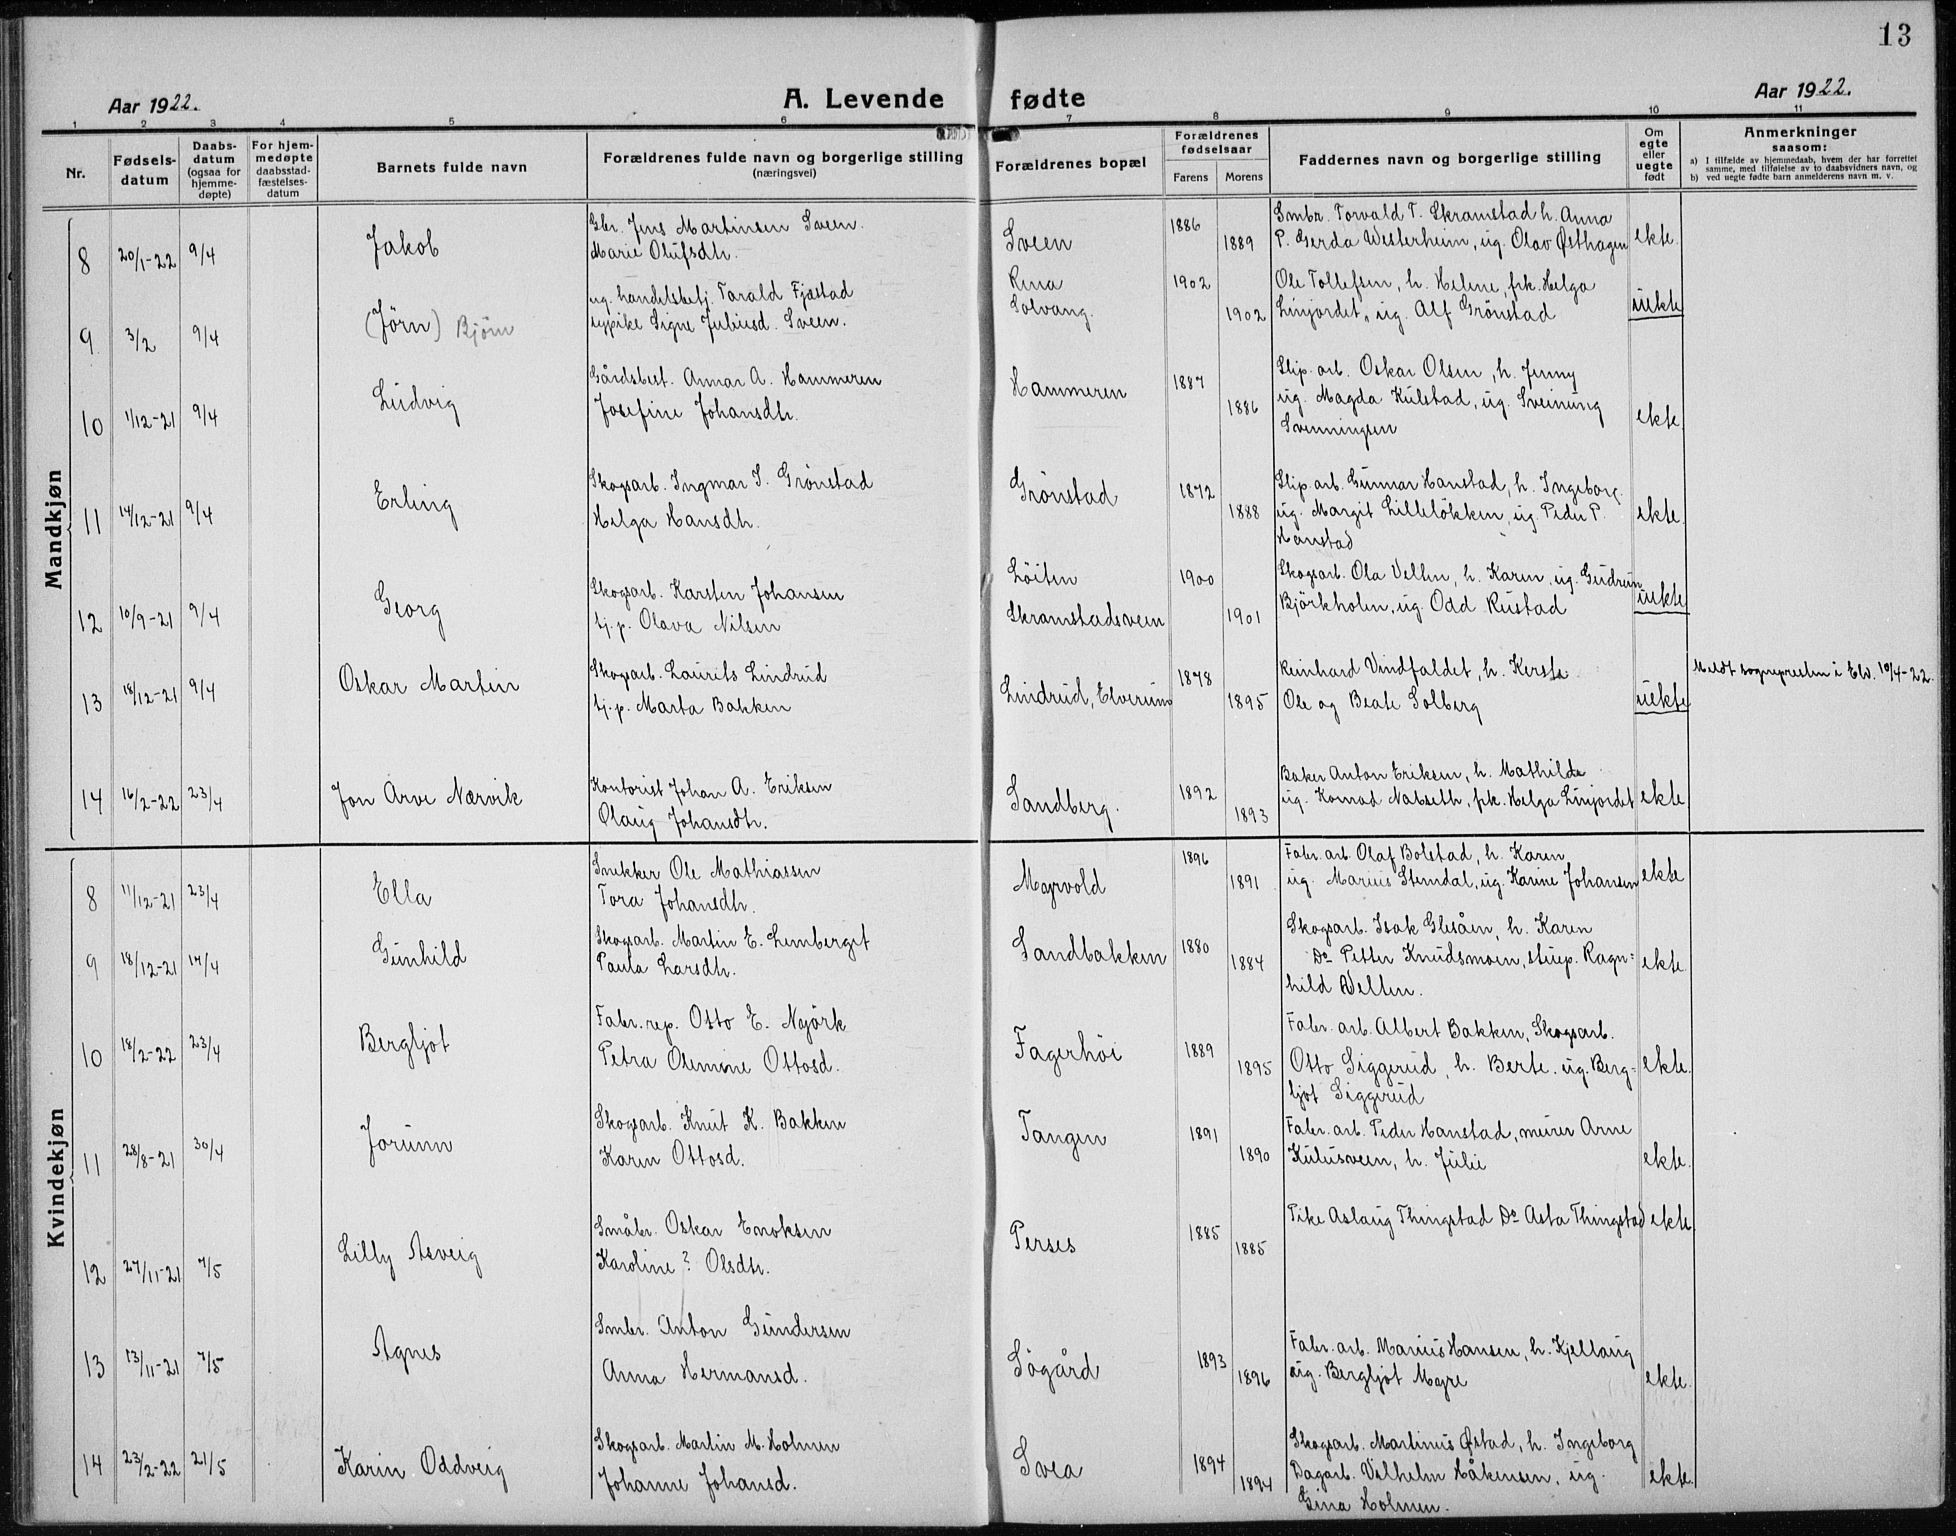 13
Aar 1922.
A. Levende fødte
Aar 1922.
1 2 3 4 5 6 7 8 9 10 11
Nr.
Fødsels-
datum
Daabs-
datum
(ogsaa for
hjemme-
døpte)
For hjem-
medøpte
daabsstad-
fæstelses-
datum
Barnets fulde navn
Forældrenes fulde navn og borgerlige stilling
(næringsvei)
Forældrenes bopæl
Forældrenes
fødselsaar
Farens Morens
Faddernes navn og borgerlige stilling
Om
egte
eller
uegte
født
Anmerkninger
saasom:
a) I tilfælde av hjemmedaab, hvem der har forrettet
samme, med tilføielse av to daabsvidners navn, og
b) ved uegte fødte barn anmelderens navn m. v.
Mandkjøn
8 20/1-22 9/4 Jakob
Gbr. Jens Martinsen Sveen.
Marie Olufsdtr.
Sveen 1886 1889
Smbr. Torvald T. Skramstad h. Anna
P. Gerda Westerheim, ug. Olav Østhagen
ekte.
9 3/2 9/4 (Jörn) Björn
ug. handelsbetj. Torald Fjæstad
sypike Signe Juliusd. Sveen.
Rena
Solvang. 1902 1902
Ole Tollefsen, h. Helene, frk. Helga
Linjordet, ug. Alf Grönstad
uekte
10 1/12-21 9/4 Ludvig
Gårdsbest. Annar A. Hammeren
Josefine Johansdtr.
Hammeren 1887 1886
Slip. arb. Oskar Olsen, h. Jenny
ug. Magda Kulstad, ug. Sveinung
Svenningsen
ekte.
11 14/12-21 9/4 Erling
Skogsarb. Ingmar I. Grönstad
Helga Hansdtr.
Grönstad 1872 1888
Slip. arb. Gunnar Hanstad, h. Ingeborg.
ug. Margit Lillelökken, ug. Peder P.
Hanstad
ekte.
12 10/9-21 9/4 Georg
Skogsarb. Karsten Johansen
tj.p. Olava Nilsen
Löiten
Skramstadsveen 1900 1901
Skogsarb. Ola Velten, h. Karen, ug. Gudrun
Björkholen, ug. Odd Rustad
uekte
13 18/12-21 9/4 Oskar Martin
Skogsarb. Laurits Lindrud
tj.p. Marta Bakken
Lindrud, Elverum 1878 1895
Reinhard Vindfaldet, h. Kerste
Ole og Beate Solberg
uekte
Meldt sognepresten i Elv. 10/4-22.
14 16/2-22 23/4 Jon Arve Nærvik
Kontorist Johan A. Eriksen
Olaug Johansdtr.
Sandberg. 1892 1893
Baker Anton Eriksen, h. Mathilde
ug. Konrad Natseth, frk. Helga Linjordet
ekte
Kvindekjøn
8 11/12-21 23/4 Ella
Snekker Ole Mathiassen
Tora Johansdtr.
Myrvold 1896 1891
Fabr. arb. Olaf Bolstad, h. Karen
ug. Marius Stemdal, ug. Karine Johansen
ekte
9 18/12-21 17/4 Gunhild
Skogsarb. Martin E. Lemberget
Paula Larsdtr.
Sandbakken 1880 1884
Skogsarb. Isak Glesåen, h. Karen
Do Petter Knudsmoen, stuep. Ragn=
hild Velten.
ekte.
10 18/2-22 23/4 Bergljot
Fabr. rep. Otto E. Nyörk
Petra Olemine Ottosd.
Fagerhöi 1889 1895
Fabr. arb. Albert Bakken, Skogsarb.
Otto Siggerud, h. Berte. ug. Berg=
ljot Siggerud
ekte.
11 28/8-21 30/4 Jorunn
Skogsarb. Knut K. Bakken
Karen Ottosd.
Tangen 1891 1890
Fabr. arb. Peder Hanstad, murer Arne
Kulusveen, h. Julie
ekte.
12 27/11-21 7/5 Lilly Asveig
Småbr. Oskar Enoksen
Karoline? Olsdtr.
Perses 1885 1885
Pike Aslaug Thingstad Do Asta Thingstad
ekte.
13 13/11-21 7/5 Agnes
Smbr. Anton Gundersen
Anna Hermansd.
Sögård 1893 1896
Fabr. arb. Marius Hansen, h. Kjellaug
ug. Bergljot Myre
ekte.
14 23/2-22 21/5 Karin Oddveig
Skogsarb. Martin M. Holmen
Johanne Johansd.
Svea 1894 1894
Skogsarb. Martinus Østad, h. Ingeborg
Dagarb. Vilhelm Håkensen, ug.
Gina Holmen.
ekte.